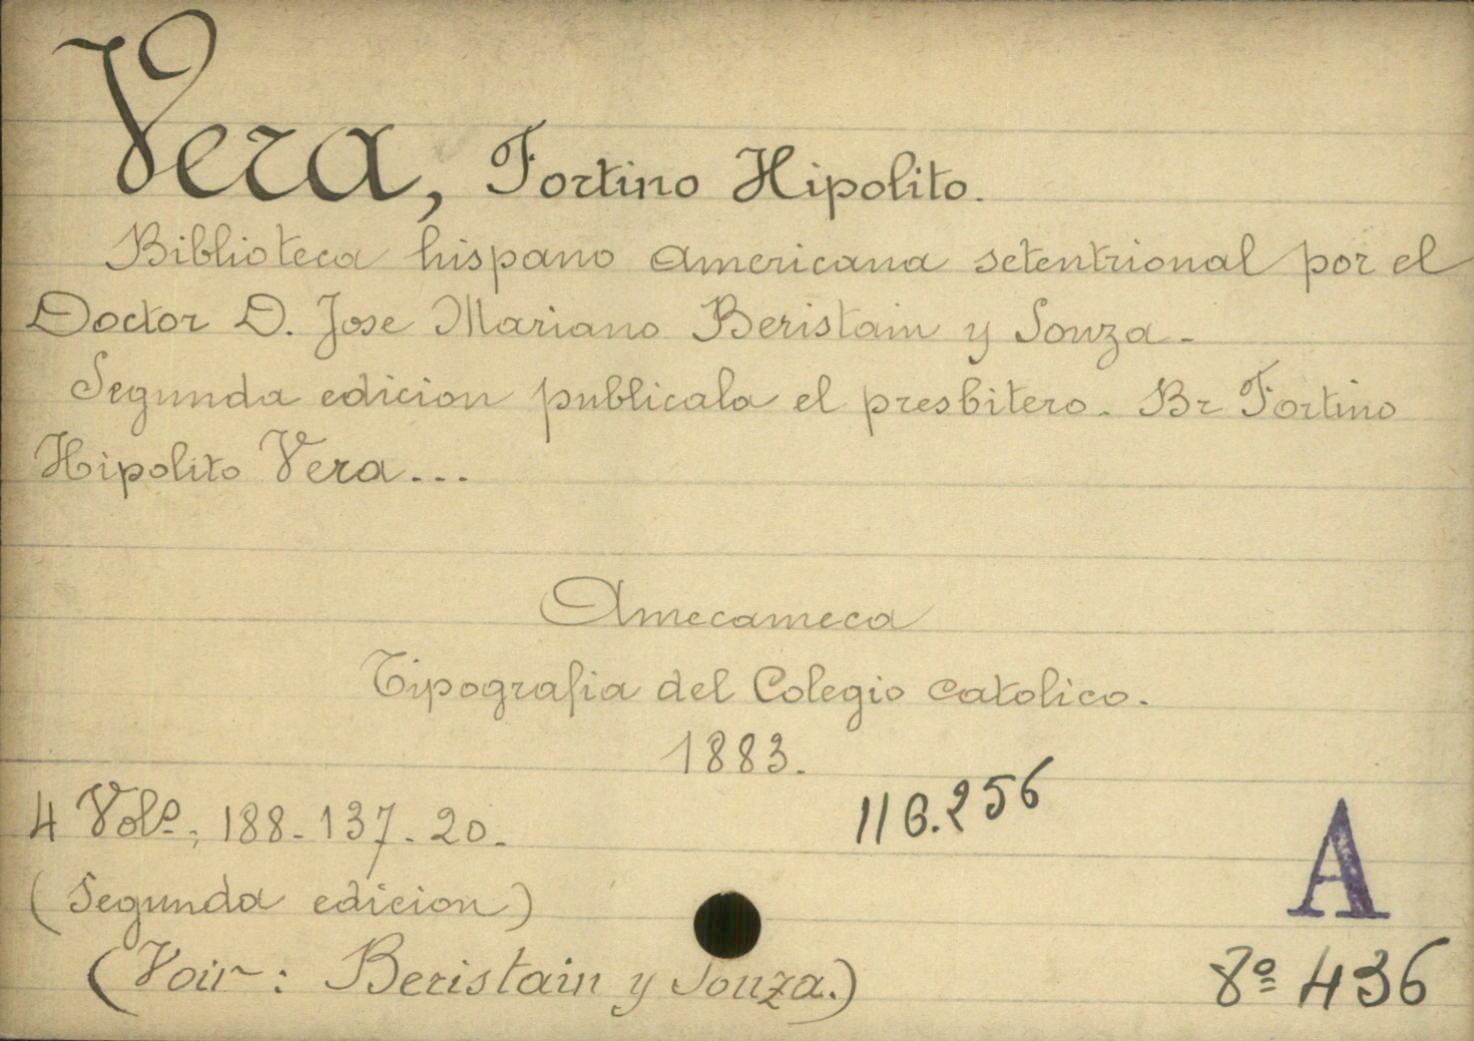 Vera, Fortino Hipolito.
Biblioteca hispano americana setentrional por el
Doctor D. Jose Mariano Beristain y Souza.
Segunda edicion publicala el presbitero. Br Fortino
Hipolito Vera...
Amecameca
Tipografia del Colegio catolico.
1883.
4 Vols., 188-137-20.
116.256
A
(Segunda edicion)
(Voir: Beristain y Souza.)
8º 436